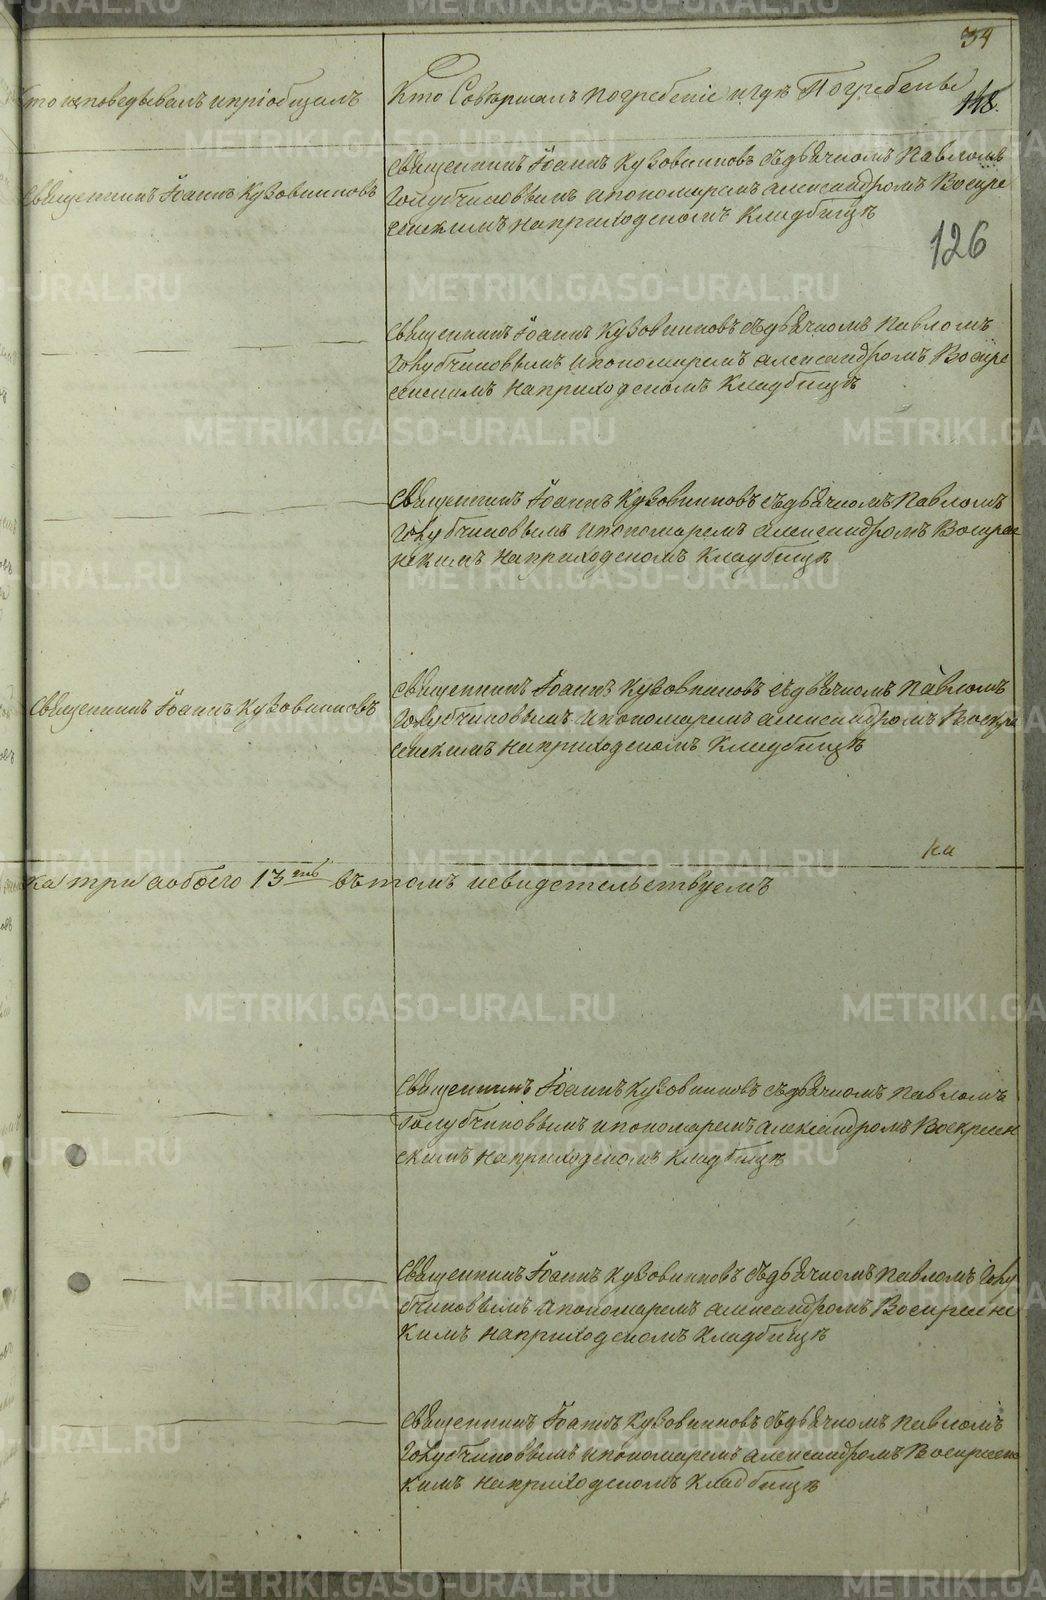 34
Кто исповедывалъ и приобщалъ
Кто Совершалъ погребенiе и где Погребены
118.
Священникъ Iоаннъ Кузовниковъ
Священникъ Iоаннъ Кузовниковъ съ дьячкомъ Павломъ
Голубчиковымъ и пономаремъ Александромъ Воскре
сенскимъ на приходскомъ Кладбищѣ
126
Священникъ Iоаннъ Кузовниковъ съ дьячкомъ Павломъ
Голубчиковымъ и пономаремъ Александромъ Воскре
сенскимъ на приходскомъ Кладбищѣ
Священникъ Iоаннъ Кузовниковъ съ дьячкомъ Павломъ
Голубчиковымъ и пономаремъ Александромъ Воскресе
нскимъ на приходскомъ Кладбищѣ
Священникъ Iоаннъ Кузовниковъ
Священникъ Iоаннъ Кузовниковъ съ дьячкомъ Павломъ
Голубчиковымъ и пономаремъ Александромъ Воскре
сенскимъ на приходскомъ Кладбищѣ
ка три а обоего 13ть въ томъ и свидетельствуемъ
Священникъ Iоаннъ Кузовниковъ съ дьячкомъ Павломъ
Голубчиковымъ и пономаремъ Александромъ Воскресен
скимъ на приходскомъ Кладбищѣ
Священникъ Iоаннъ Кузовниковъ съ дьячкомъ Павломъ Голу
бчиковымъ и пономаремъ Александромъ Воскресенс
кимъ на приходскомъ Кладбищѣ
Священникъ Iоаннъ Кузовниковъ съ дьячкомъ Павломъ
Голубчиковымъ и пономаремъ Александромъ Воскресенс
кимъ на приходскомъ Кладбищѣ
METRIKI.GASO-URAL.RU